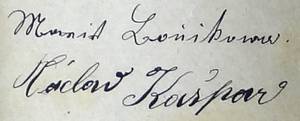 Marie Boúikowa.
Václav Kašpar